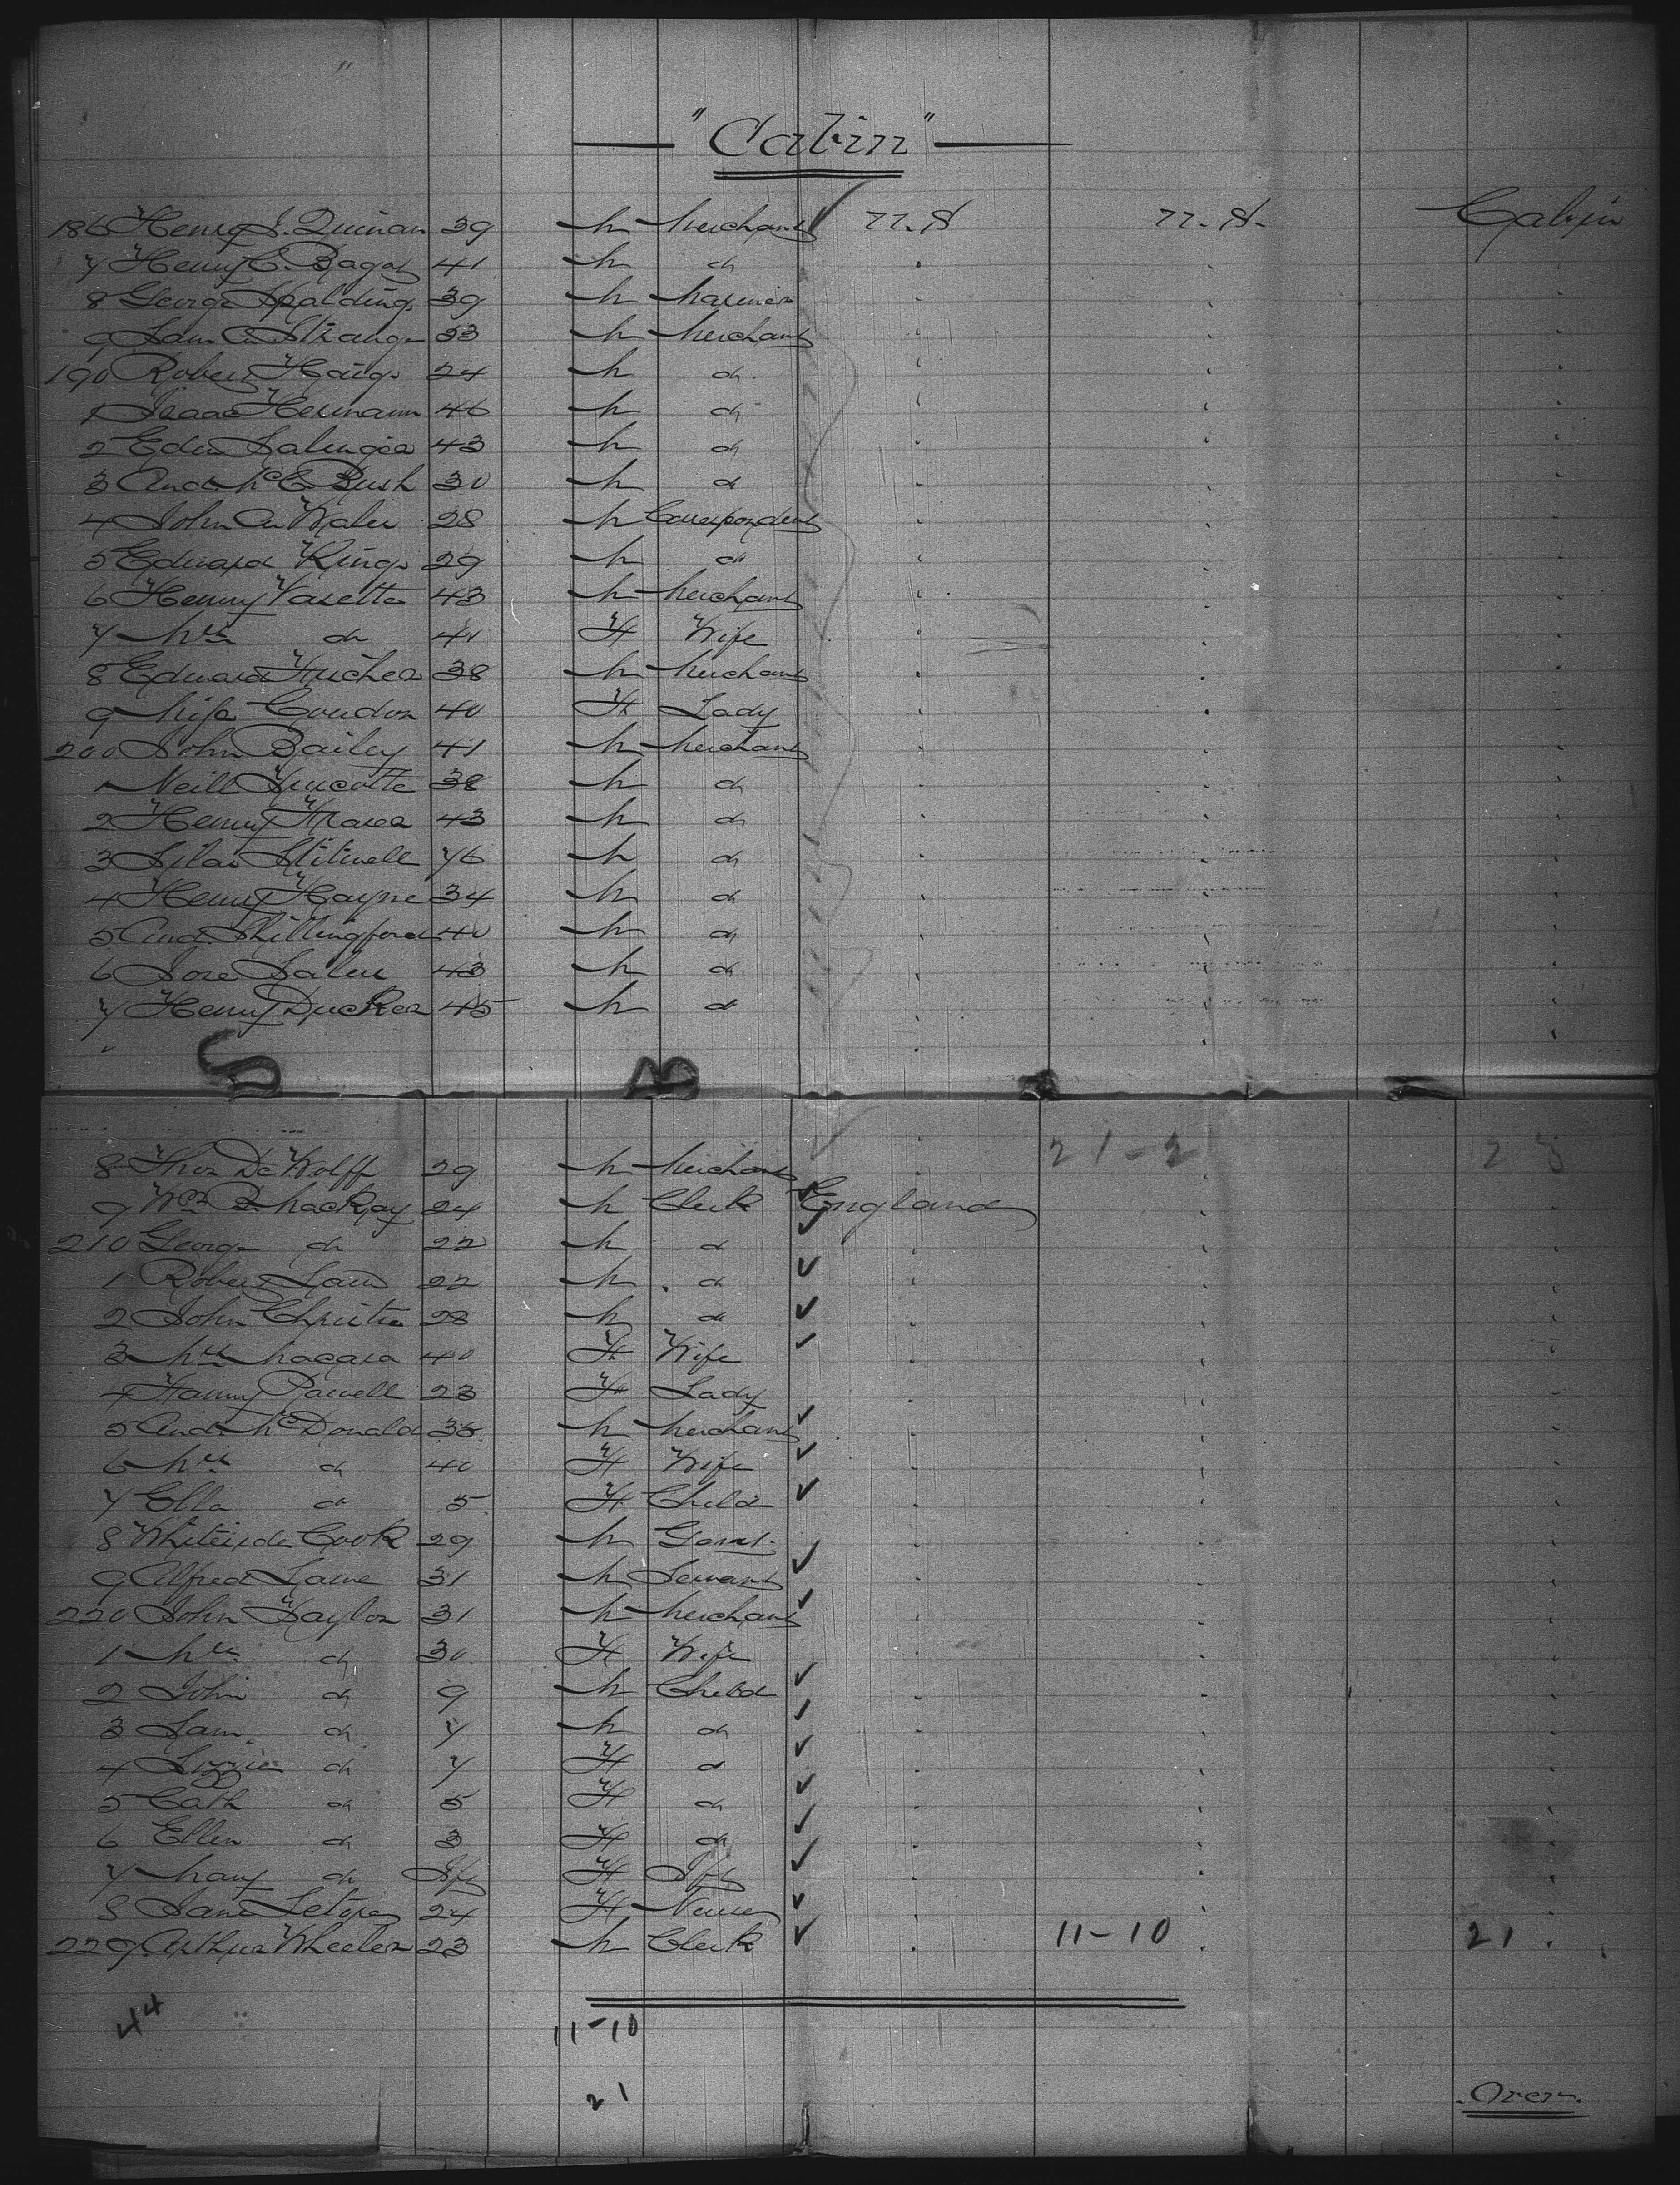 "Cabin"
186 Henry S. Quinan 39 M Merchant U.S. U.S. Cabin
7 Henry C. Bagot 41 M do
8 George Spalding 39 M Mariner
9 Sam A. Strange 53 M Merchant
190 Robert Haigs 24 M do
1 Isaac Hermann 46 M do
2 Edw Salinger 43 M do
3 And. McC Bush 30 M do
4 John A. Waler 28 M Correspondent
5 Edward King 29 M do
6 Henry Vasette 43 M Merchant
7 Mrs do 40 F Wife
8 Edward Fuches 38 M Merchant
9 Miss Condon 40 F Lady
200 John Bailey 41 M Merchant
1 Neill Turcotte 38 M do
2 Henry Fraser 43 M do
3 Silas Stilwell 76 M do
4 Henry Hayne 34 M do
5 And. Shillingford 40 M do
6 Jose Saleu 43 M do
7 Henry Ducker 45 M do
21-2 23
8 Thos De Wolff 29 M Merchant
9 Wm B. Mackay 24 M Clerk England
210 George do 22 M do
1 Robert Law 22 M do
2 John Christie 28 M do
3 Mrs Macara 40 F Wife
4 Fanny Powell 23 F Lady
5 And. McDonald 35 M Merchant
6 Mrs do 40 F Wife
7 Ella do 5 F Child
8 Whiteside Cook 29 M Gent.
9 Alfred Lowe 31 M Servant
220 John Taylor 31 M Merchant
1 Mrs do 30 F Wife
2 John do 9 M Child
3 Sam do 7 M do
4 Lizzie do 7 F do
5 Cath do 5 F do
6 Ellen do 3 F do
7 Mary do Inft F Inft
8 Jane 24 F Nurse
229 Arthur Wheeler 23 M Clerk 11-10 21
44 11-10
21
Over.